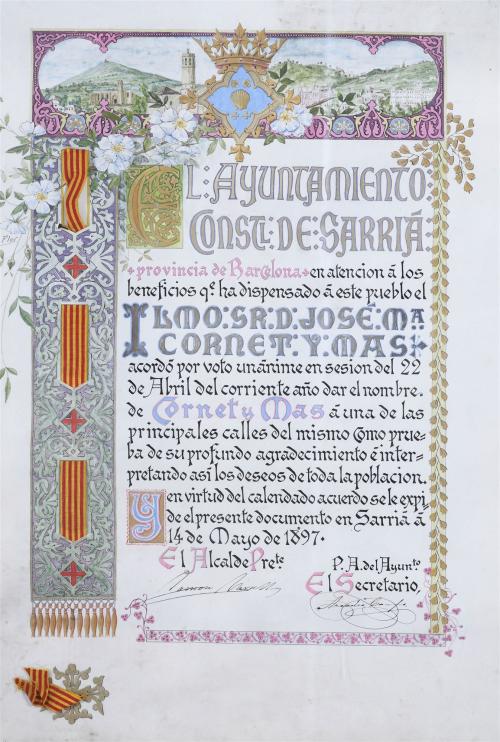 EL: AYUNTAMIENTO:
CONST: DE: SARRIÁ:
provincia de Barcelona en atencion á los
beneficios q.e ha dispensado á este pueblo el
ILMO: SR: D. JOSÉ: M.A
CORNET: Y: MAS:
acordó por voto unánime en sesion del 22
de Abril del corriente año dar el nombre.
de Cornet y Mas á una de las
principales calles del mismo Como prue-
ba de su profundo agradecimiento é inter-
pretando así los deseos de toda la poblacion.
Y en virtud del calendado acuerdo se le expi-
de el presente documento en Sarriá á
14 de Mayo de 1897.
El Alcalde Pre.te
P. A. del Ayun.to
El Secretario,